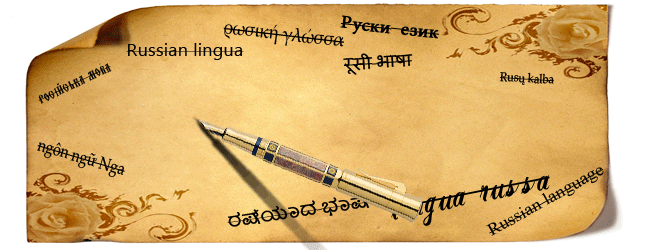 ρωσική γλώσσα
Руски език
Russian lingua
रूसी भाषा
Rusų kalba
російська мова
ngôn ngữ Nga
ರಷೆಯಾದ
russa
Russian language